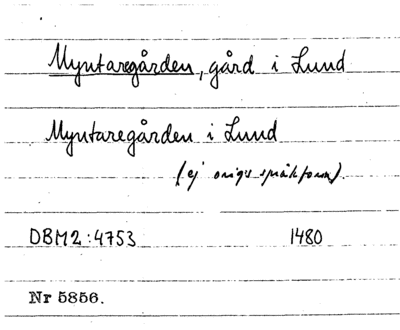 Myntaregården, gård i Lund
Myntaregården i Lund
(ej origs språkform).
DBM2:4753 1480
Nr 5856.